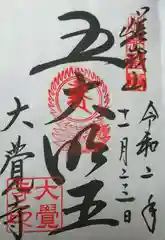 嵯峨山
令和二年
十一月二三日
五大明王
大覺寺
大覺
寺印